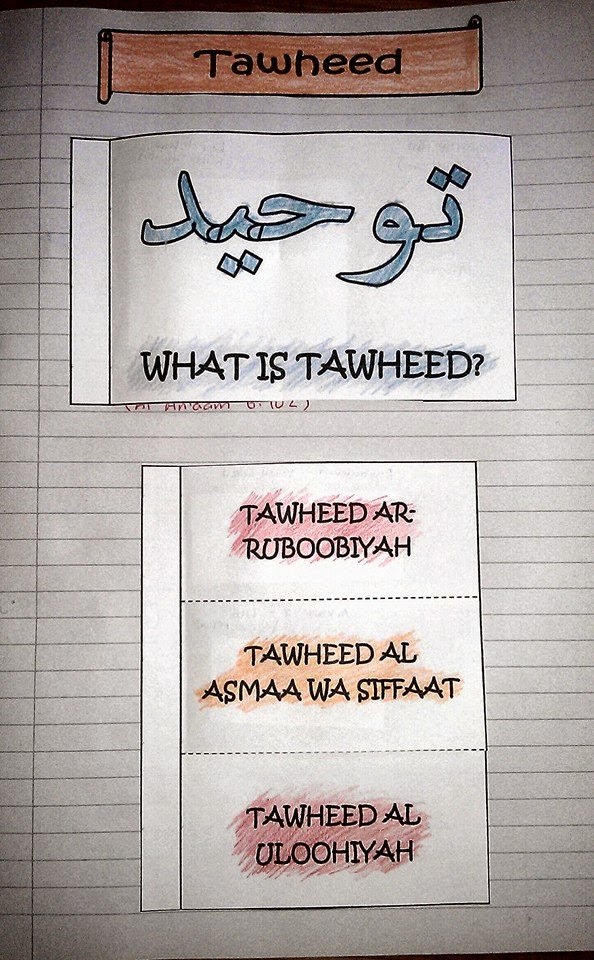 Tawheed
توحيد
WHAT IS TAWHEED?
(Al An'aam 6:102)
TAWHEED AR-
RUBOOBIYAH
TAWHEED AL
ASMAA WA SIFFAAT
TAWHEED AL
ULOOHIYAH